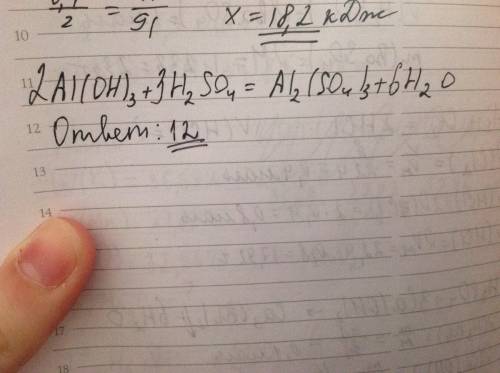 2 = 91 x = 18,2 кДж
10
11
2Al(OH)3 + 3H2SO4 = Al2(SO4)3 + 6H2O
12
Ответ: 12
13
14
17
18